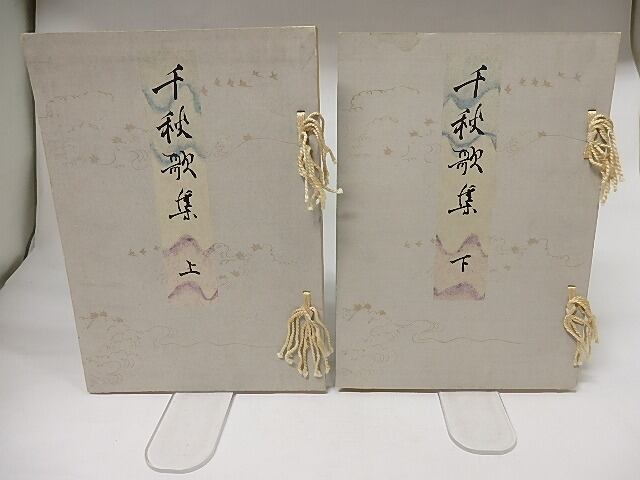 千秋歌集 上
千秋歌集 下